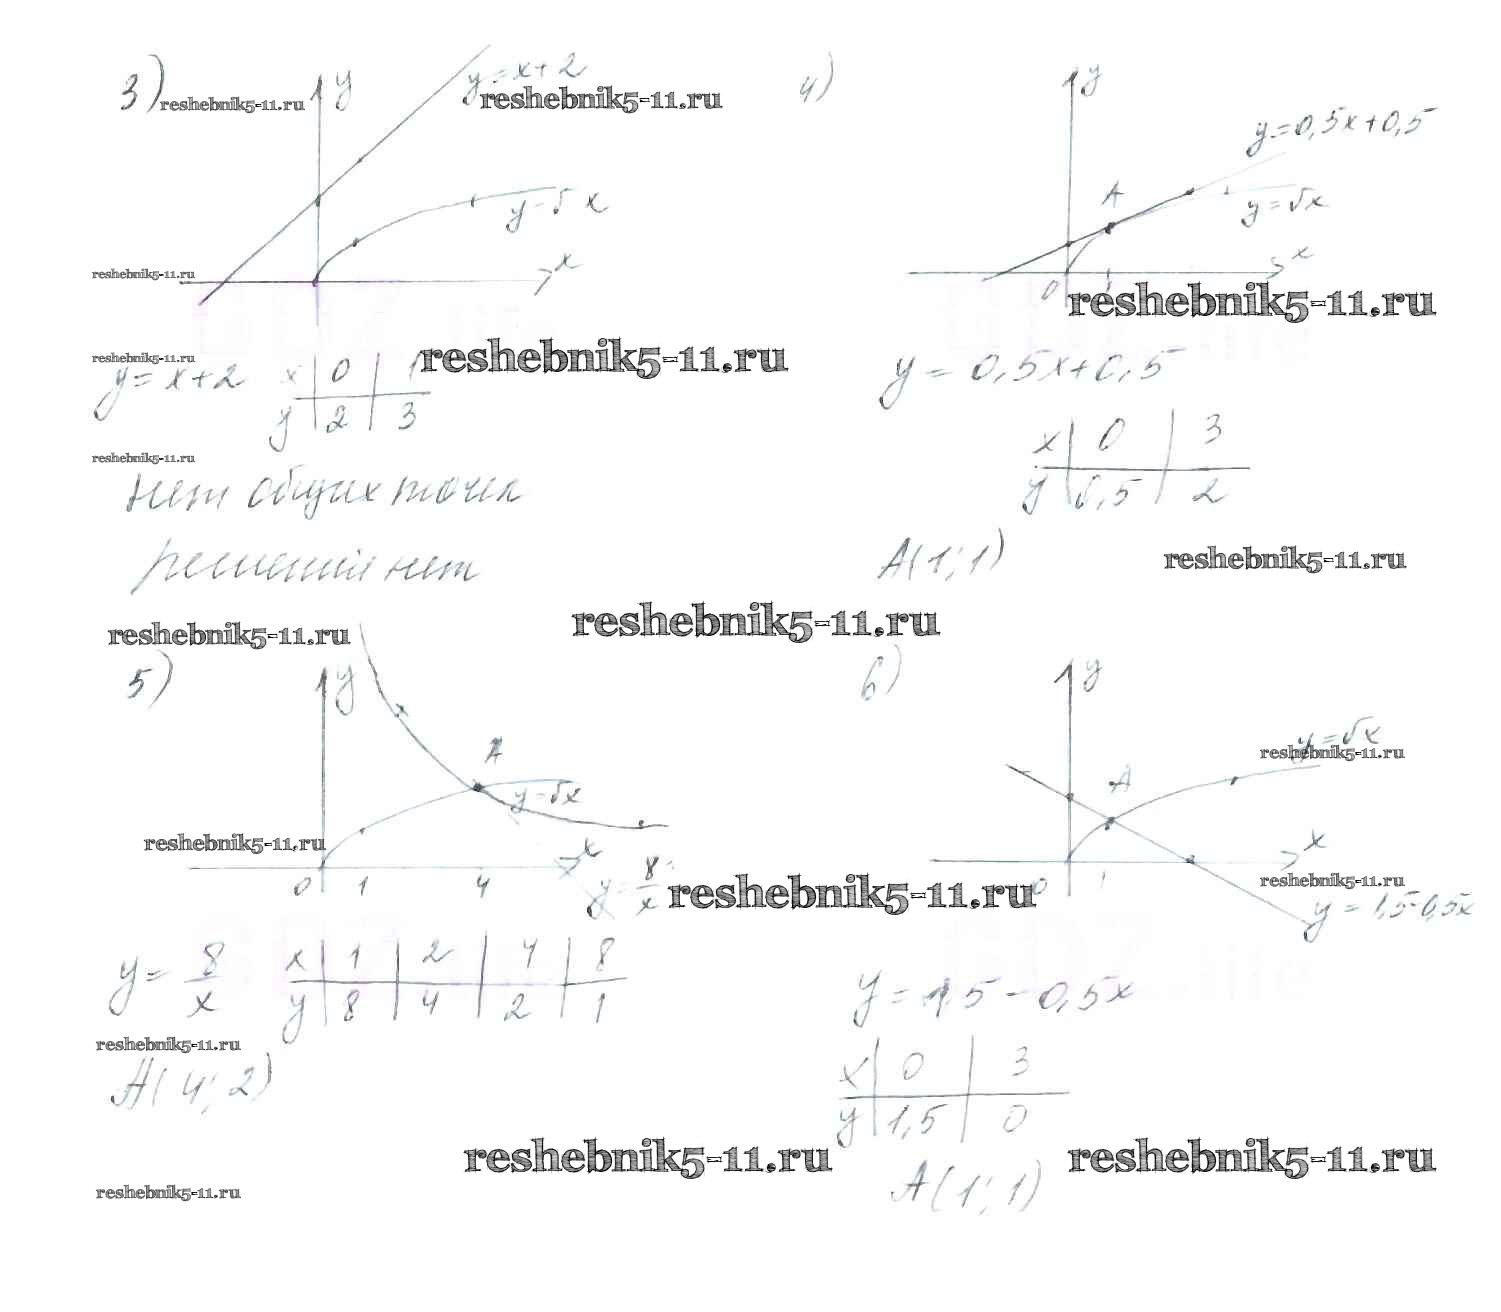 3) reshebnik5-11.ru y y = x + 2
reshebnik5-11.ru
y = √x
x
reshebnik5-11.ru
reshebnik5-11.ru
reshebnik5-11.ru
y = x + 2 x 0 1
y 2 3
reshebnik5-11.ru
нет общих точек
решений нет
4) y
y = 0,5x + 0,5
A
y = √x
x
0 1
reshebnik5-11.ru
y = 0,5x + 0,5
x 0 3
y 0,5 2
A(1; 1)
reshebnik5-11.ru
reshebnik5-11.ru
reshebnik5-11.ru
5) y
A
y = √x
reshebnik5-11.ru
x
0 1 4
y = 8/x
reshebnik5-11.ru
y = 8/x x 1 2 4 8
y 8 4 2 1
reshebnik5-11.ru
A(4; 2)
reshebnik5-11.ru
reshebnik5-11.ru
6) y
y = √x
reshebnik5-11.ru
A
x
0 1
reshebnik5-11.ru
y = 1,5 - 0,5x
y = 1,5 - 0,5x
x 0 3
y 1,5 0
reshebnik5-11.ru
A(1; 1)